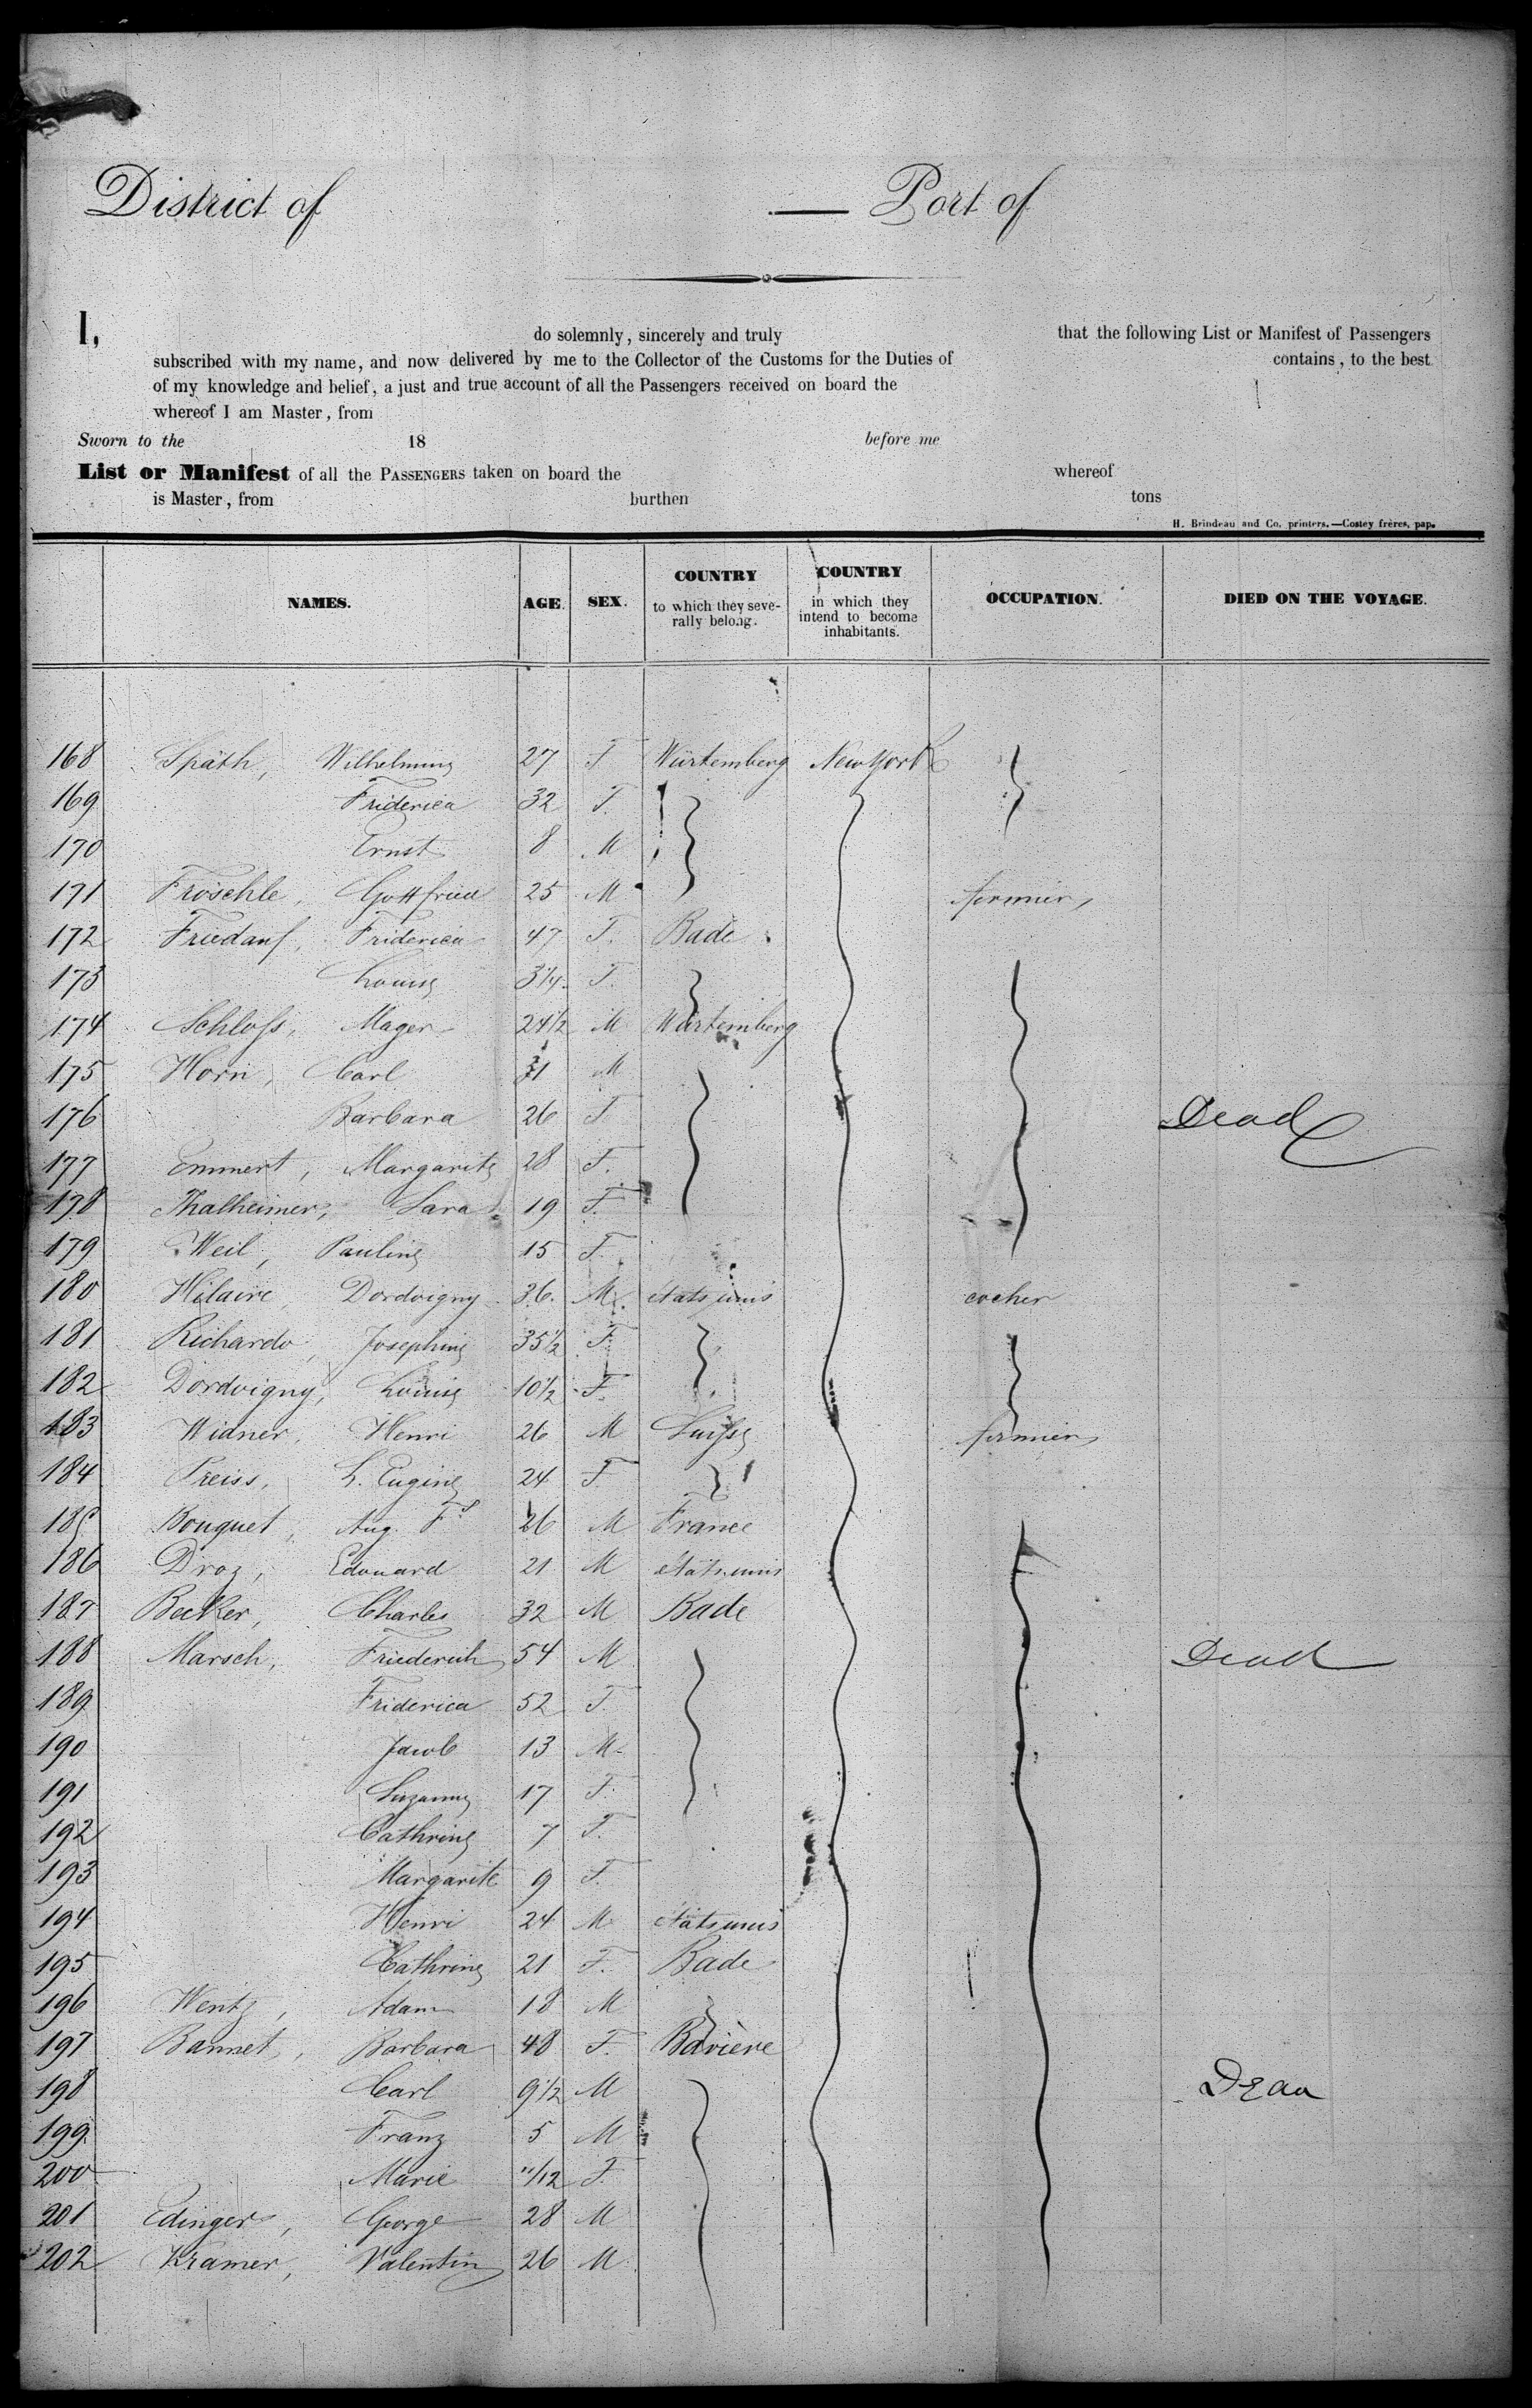 District of — Port of
I, do solemnly, sincerely and truly that the following List or Manifest of Passengers
subscribed with my name, and now delivered by me to the Collector of the Customs for the Duties of contains, to the best
of my knowledge and belief, a just and true account of all the Passengers received on board the
whereof I am Master, from
Sworn to the 18 before me
List or Manifest of all the PASSENGERS taken on board the whereof
is Master, from burthen tons
H. Brindeau and Co. printers.—Costey frères, pap.
NAMES. AGE. SEX. COUNTRY to which they severally belong. COUNTRY in which they intend to become inhabitants. OCCUPATION. DIED ON THE VOYAGE.
168 Späth, Wilhelmine 27 F Würtemberg New York
169 Friderica 32 F.
170 Ernst 8 M
171 Fröschle, Gottfried 25 M fermier
172 Friedauf, Friderica 47 F. Bade
173 Louise 3 1/4 F.
174 Schloss, Mager 24 1/2 M Würtemberg
175 Horn, Carl 31 M
176 Barbara 26 F Dead
177 Emmert, Margarite 28 F.
178 Thalheimer, Sara 19 F.
179 Weil, Pauline 15 F.
180 Hilaire, Dordvigny 36. M. états unis cocher
181 Richardo, Josephine 35 1/2 F.
182 Dordvigny, Louise 10 1/2 F.
183 Widner, Henri 26 M Suisse fermier
184 Preiss, L. Eugine 24 F
185 Bouquet, Aug. Fs 26 M France
186 Droz, Edouard 21 M états unis
187 Becker, Charles 32 M Bade
188 Marsch, Friederich 54 M Dead
189 Friderica 52 F.
190 Jacob 13 M.
191 Suzanne 17 F.
192 Cathrine 7 F.
193 Margarite 9 F.
194 Henri 24 M états unis
195 Cathrine 21 F. Bade
196 Wentz, Adam 18 M
197 Bannet, Barbara 48 F. Bavière
198 Carl 9 1/2 M Dead
199 Franz 5 M
200 Marie 11/12 F.
201 Edinger, George 28 M
202 Kramer, Valentin 26 M